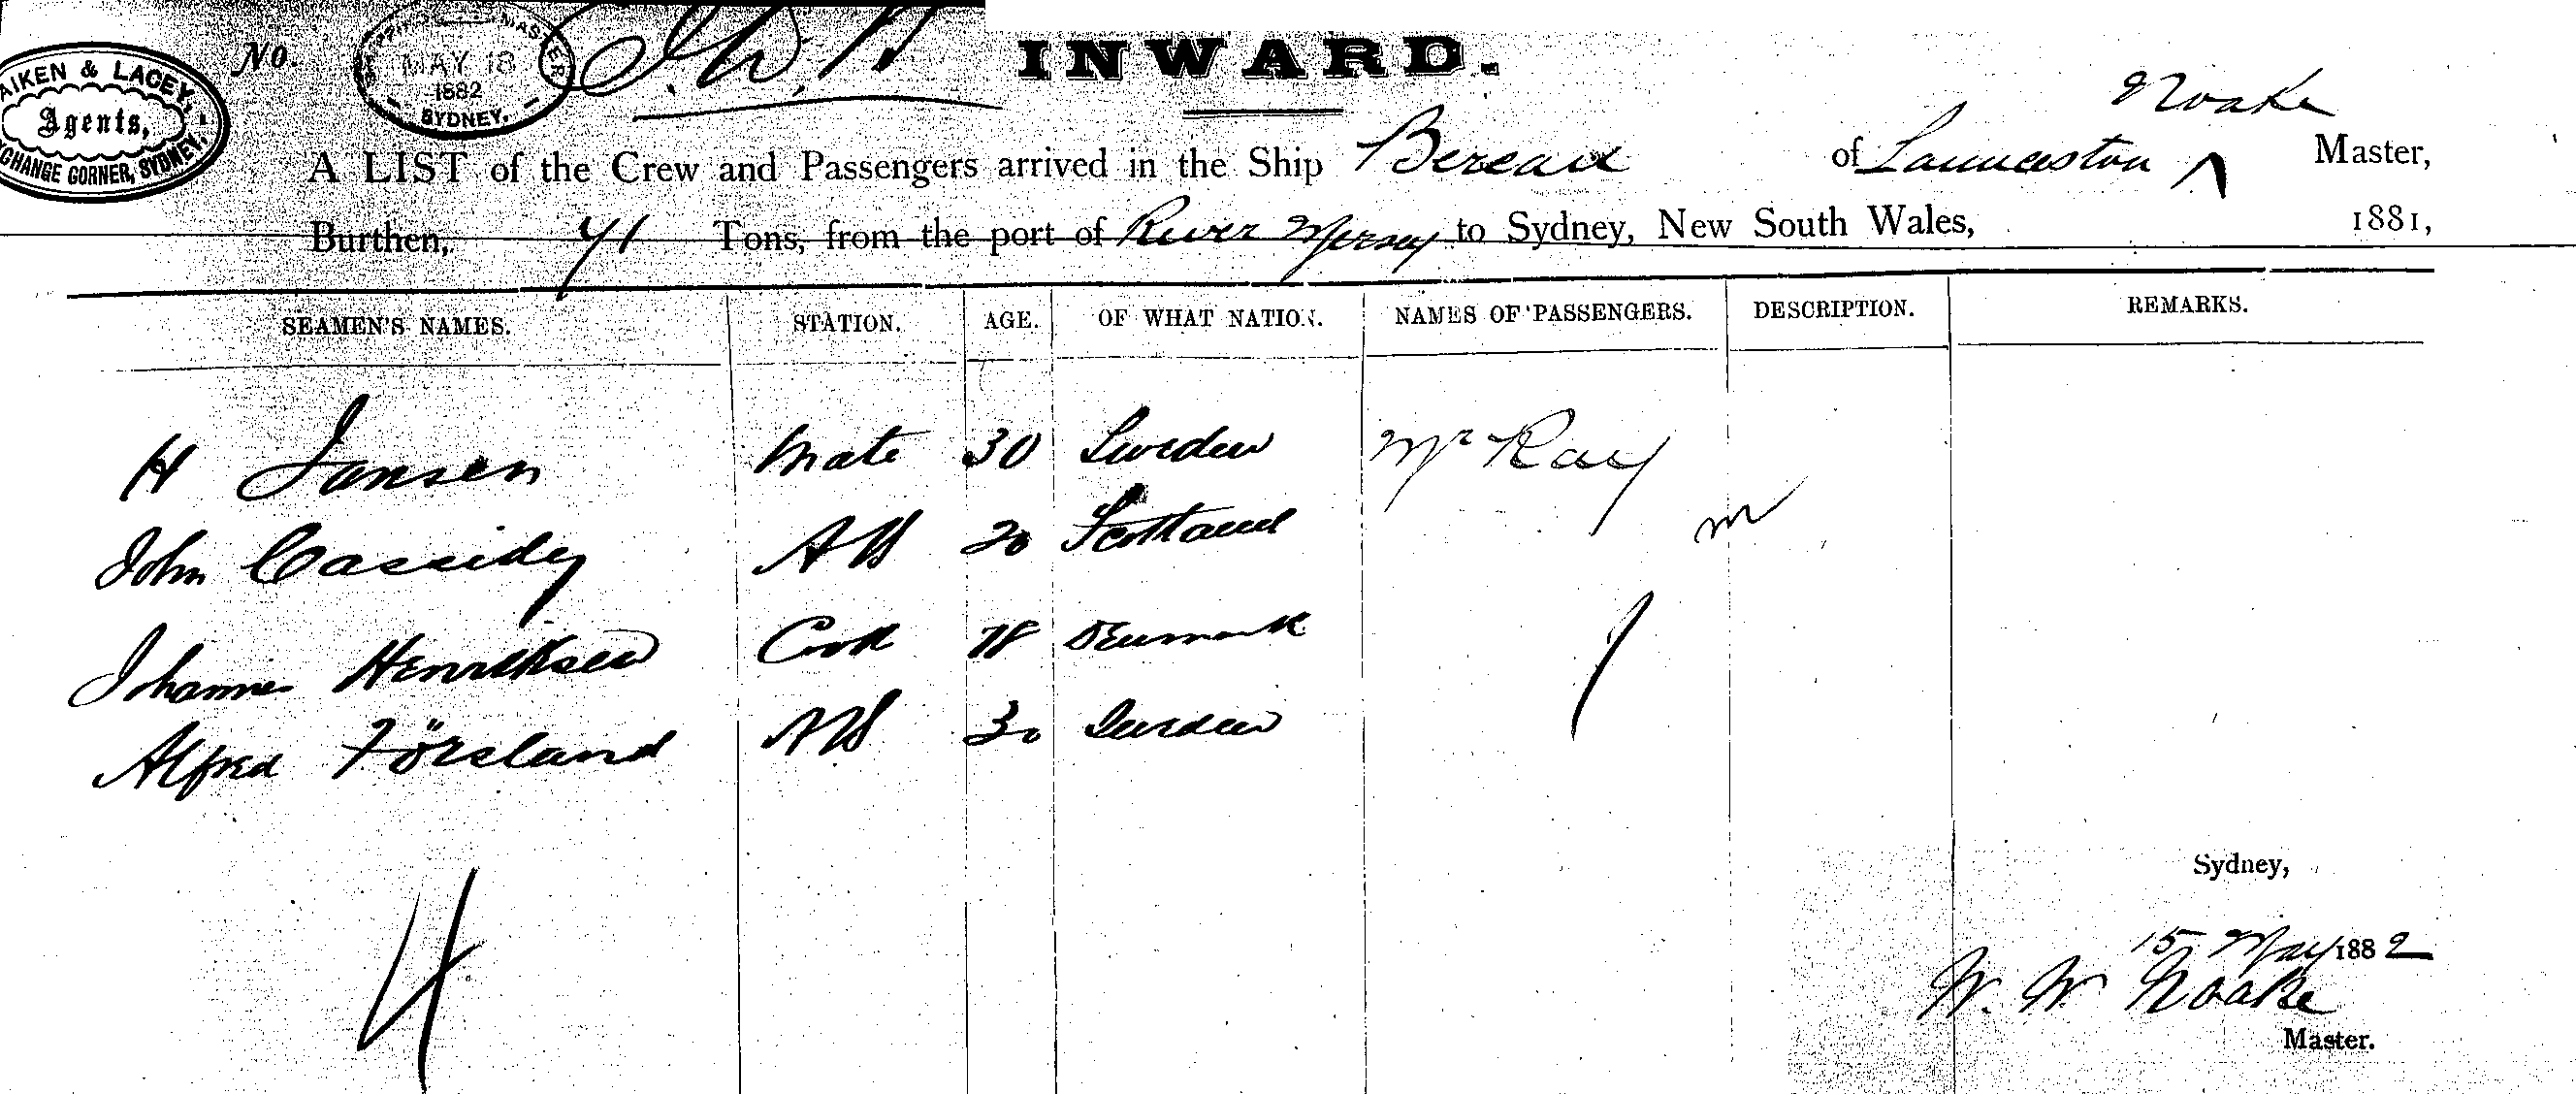 No.
AIKEN & LACEY,
Agents,
EXCHANGE CORNER, SYDNEY.
MAY 18
1882
SYDNEY.
INWARD.
Noake
A LIST of the Crew and Passengers arrived in the Ship Berean of Launceston ^ Master,
Burthen, 41 Tons, from the port of River Mersey to Sydney, New South Wales, 1881,
SEAMEN'S NAMES. STATION. AGE. OF WHAT NATION. NAMES OF PASSENGERS. DESCRIPTION. REMARKS.
H Jansen Mate 30 Sweden Mr Ray
John Cassidy AB 20 Scotland m
Johannes Henriksen Cook 18 Denmark 1
Alfred Försland AB 30 Sweden
4
Sydney,
15 May 1882
W. W. Noake
Master.